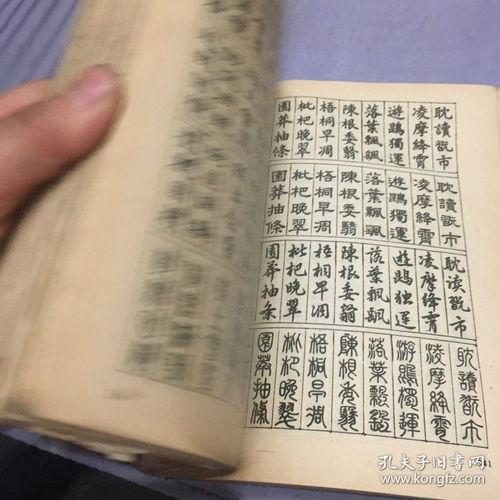 耽讀翫市
凌摩絳霄
遊鵾獨運
落葉飄颻
陳根委翳
梧桐早凋
枇杷晚翠
園莽抽條
耽讀翫市
凌摩絳霄
遊鵾獨運
落葉飄颻
陳根委翳
梧桐早凋
枇杷晚翠
園莽抽條
耽读翫市
凌摩絳霄
遊鵾独運
落葉飄颻
陳根委翳
梧桐早凋
枇杷晚翠
園莽抽条
耽讀翫市
凌摩絳霄
游鵾獨運
落葉飄颻
陳根委翳
梧桐早凋
枇杷晚翠
園莽抽條
孔夫子旧书网
www.kongfz.com